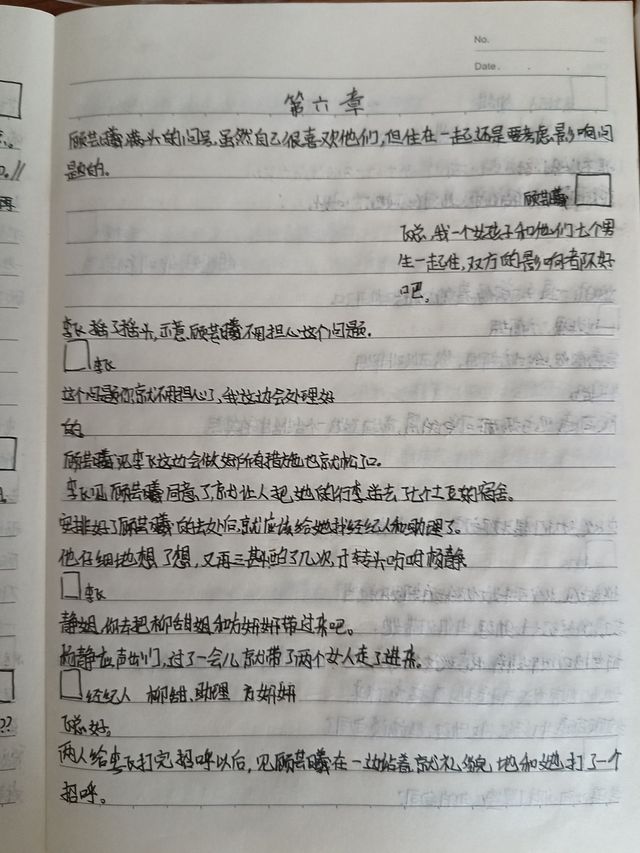 No.
Date . . .
第六章
顾芸曦满头的问号,虽然自己很喜欢他们,但住在一起还是要考虑影响问
题的。
顾芸曦
飞总,我一个女孩子和他们七个男
生一起住,双方的影响都不好
吧。
李飞摇了摇头,示意顾芸曦不用担心这个问题.
李飞
这个问题你就不用担心了,我这边会处理好
的
顾芸曦见李飞这边会做好所有措施也就松了口。
李飞见顾芸曦同意了,就让人把她的行李送去了七个土豆的宿舍。
安排好了顾芸曦的去处后,就应该给她找经纪人和助理了。
他仔细地想了想,又再三斟酌了几次,才转头吩咐杨静
李飞
静姐,你去把柳甜姐和方妍妍带过来吧。
杨静应声出门,过了一会儿就带了两个女人走了进来。
经纪人 柳甜、助理 方妍妍
飞总好。
两人给李飞打完招呼以后,见顾芸曦在一边站着就礼貌地和她打了一个
招呼。
再
??